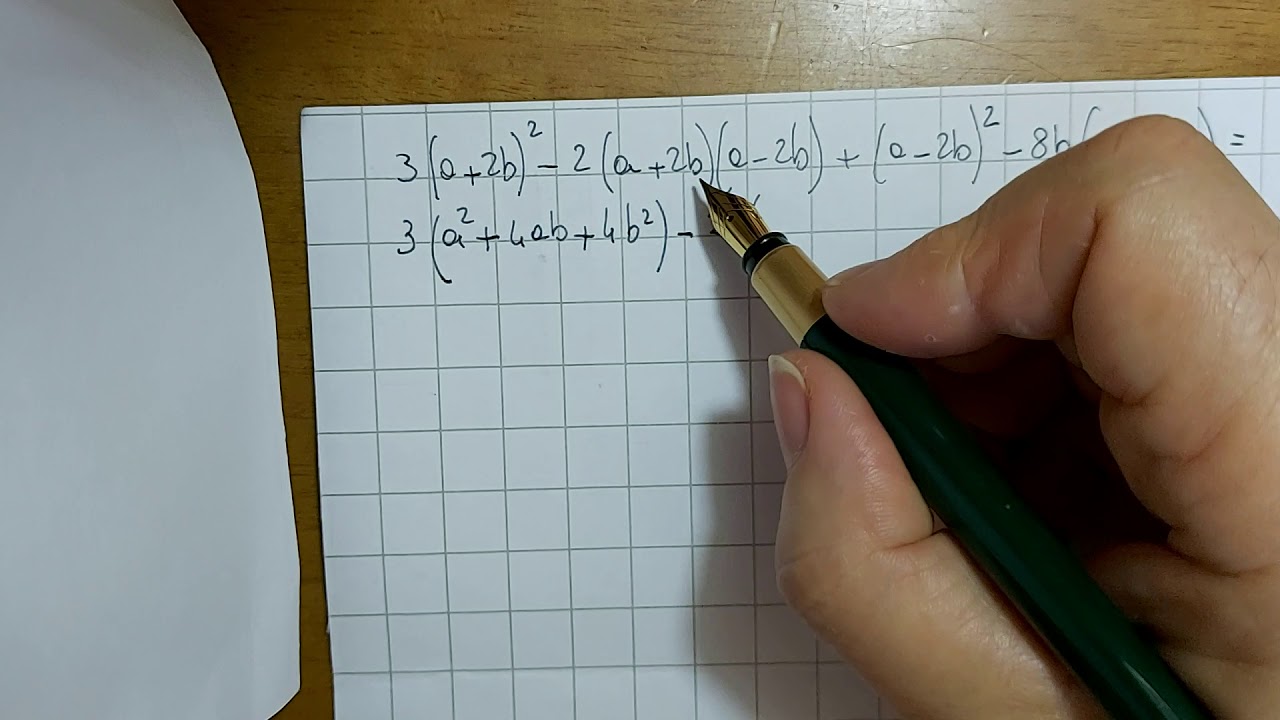 3(a+2b)² - 2(a+2b)(a-2b) + (a-2b)² - 8b( ) =
3(a²+4ab+4b²) -